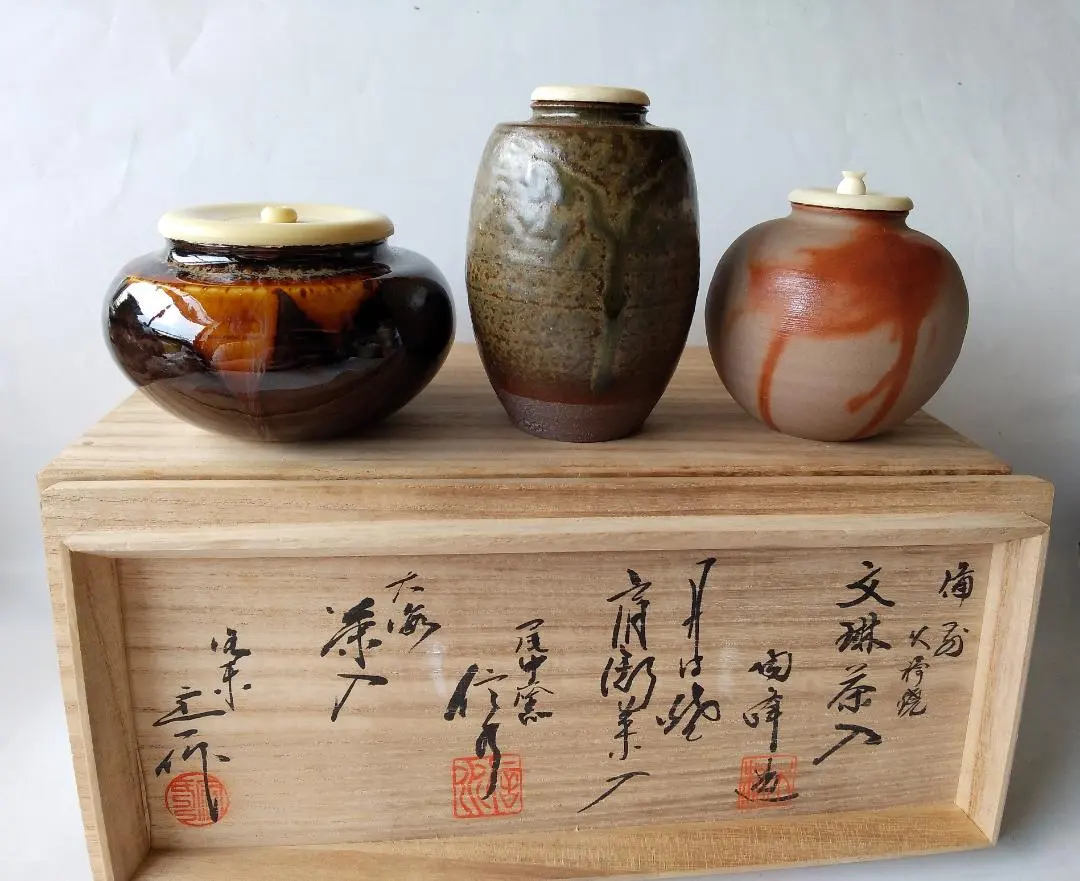 備前
火襷焼
文琳茶入
陶峰
造
丹波焼
肩衝茶入
窯
信水
大海
茶入
作